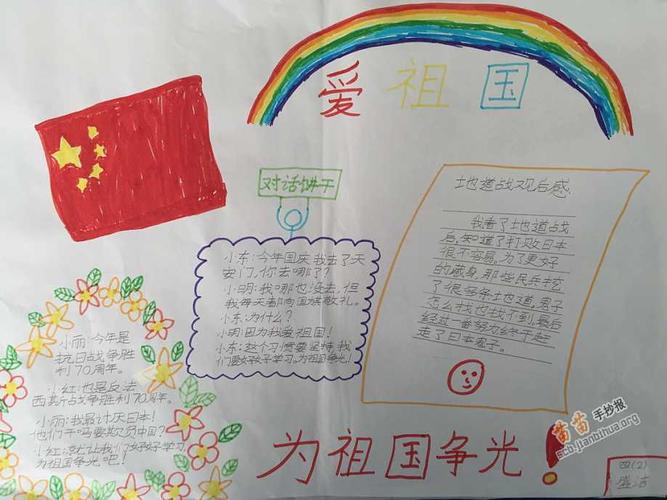 爱祖国
对话饼干
小东:今年国庆我去了天
安门,你去哪了?
小明:我哪也没去,但
我每天都向国旗敬礼。
小东:为什么?
小明:因为我爱祖国!
小东:这个习惯要坚持,我
们要好好学习,为祖国争光!
地道战观后感
我看了地道战
后,知道了打败日本
很不容易,为了更好
的藏身,那些民兵挖
了很多条地道,鬼子
怎么找也找不到,最后
经过一番努力终于赶
走了日本鬼子。
小丽:今年是
抗日战争胜
利70周年。
小红:也是反法
西斯战争胜利70周年。
小丽:我最讨厌日本!
他们干吗要欺负中国?
小红:就让我们好好学习
为祖国争光吧!
为祖国争光!
苗苗手抄报
scb.jianbihua.org
四(2)
盛洁